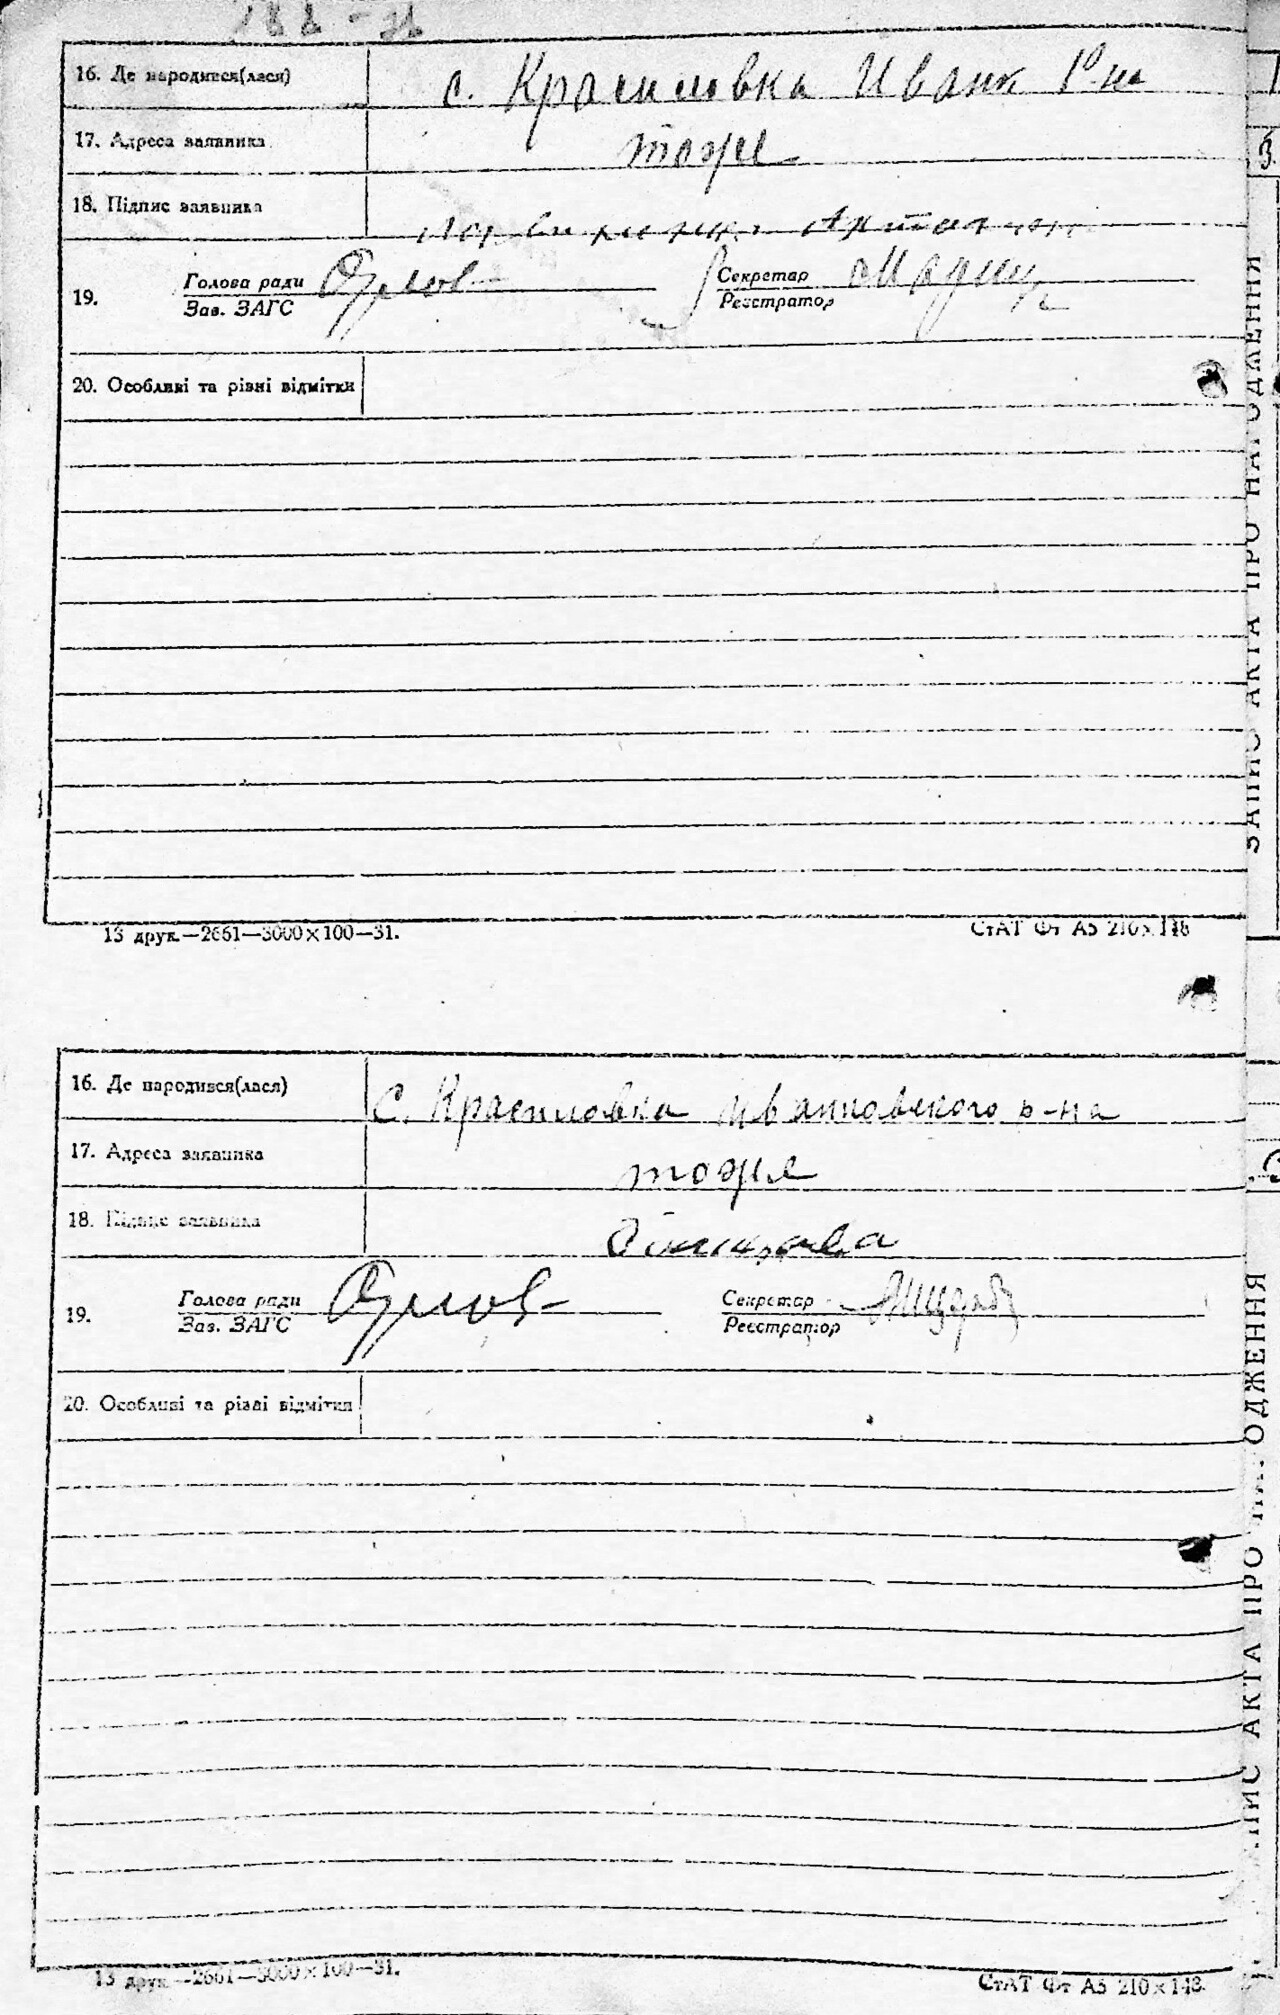 16. Де народився(лася) с. Красиловка Иванк Р-на
17. Адреса заявника тоже
18. Підпис заявника
19. Голова ради Секретар
Зав. ЗАГС Реєстратор
20. Особливі та різні відмітки
13 друк.—2661—3000×100—31. СтАТ Фт А5 210×148
16. Де народився(лася) с. Красиловка Иванковского р-на
17. Адреса заявника тоже
18. Підпис заявника
19. Голова ради Секретар
Зав. ЗАГС Реєстратор
20. Особливі та різні відмітки
13 друк.—2661—3000×100—31. СтАТ Фт А5 210×148
ЗАПИС АКТА ПРО НАРОДЖЕННЯ
ЗАПИС АКТА ПРО НАРОДЖЕННЯ